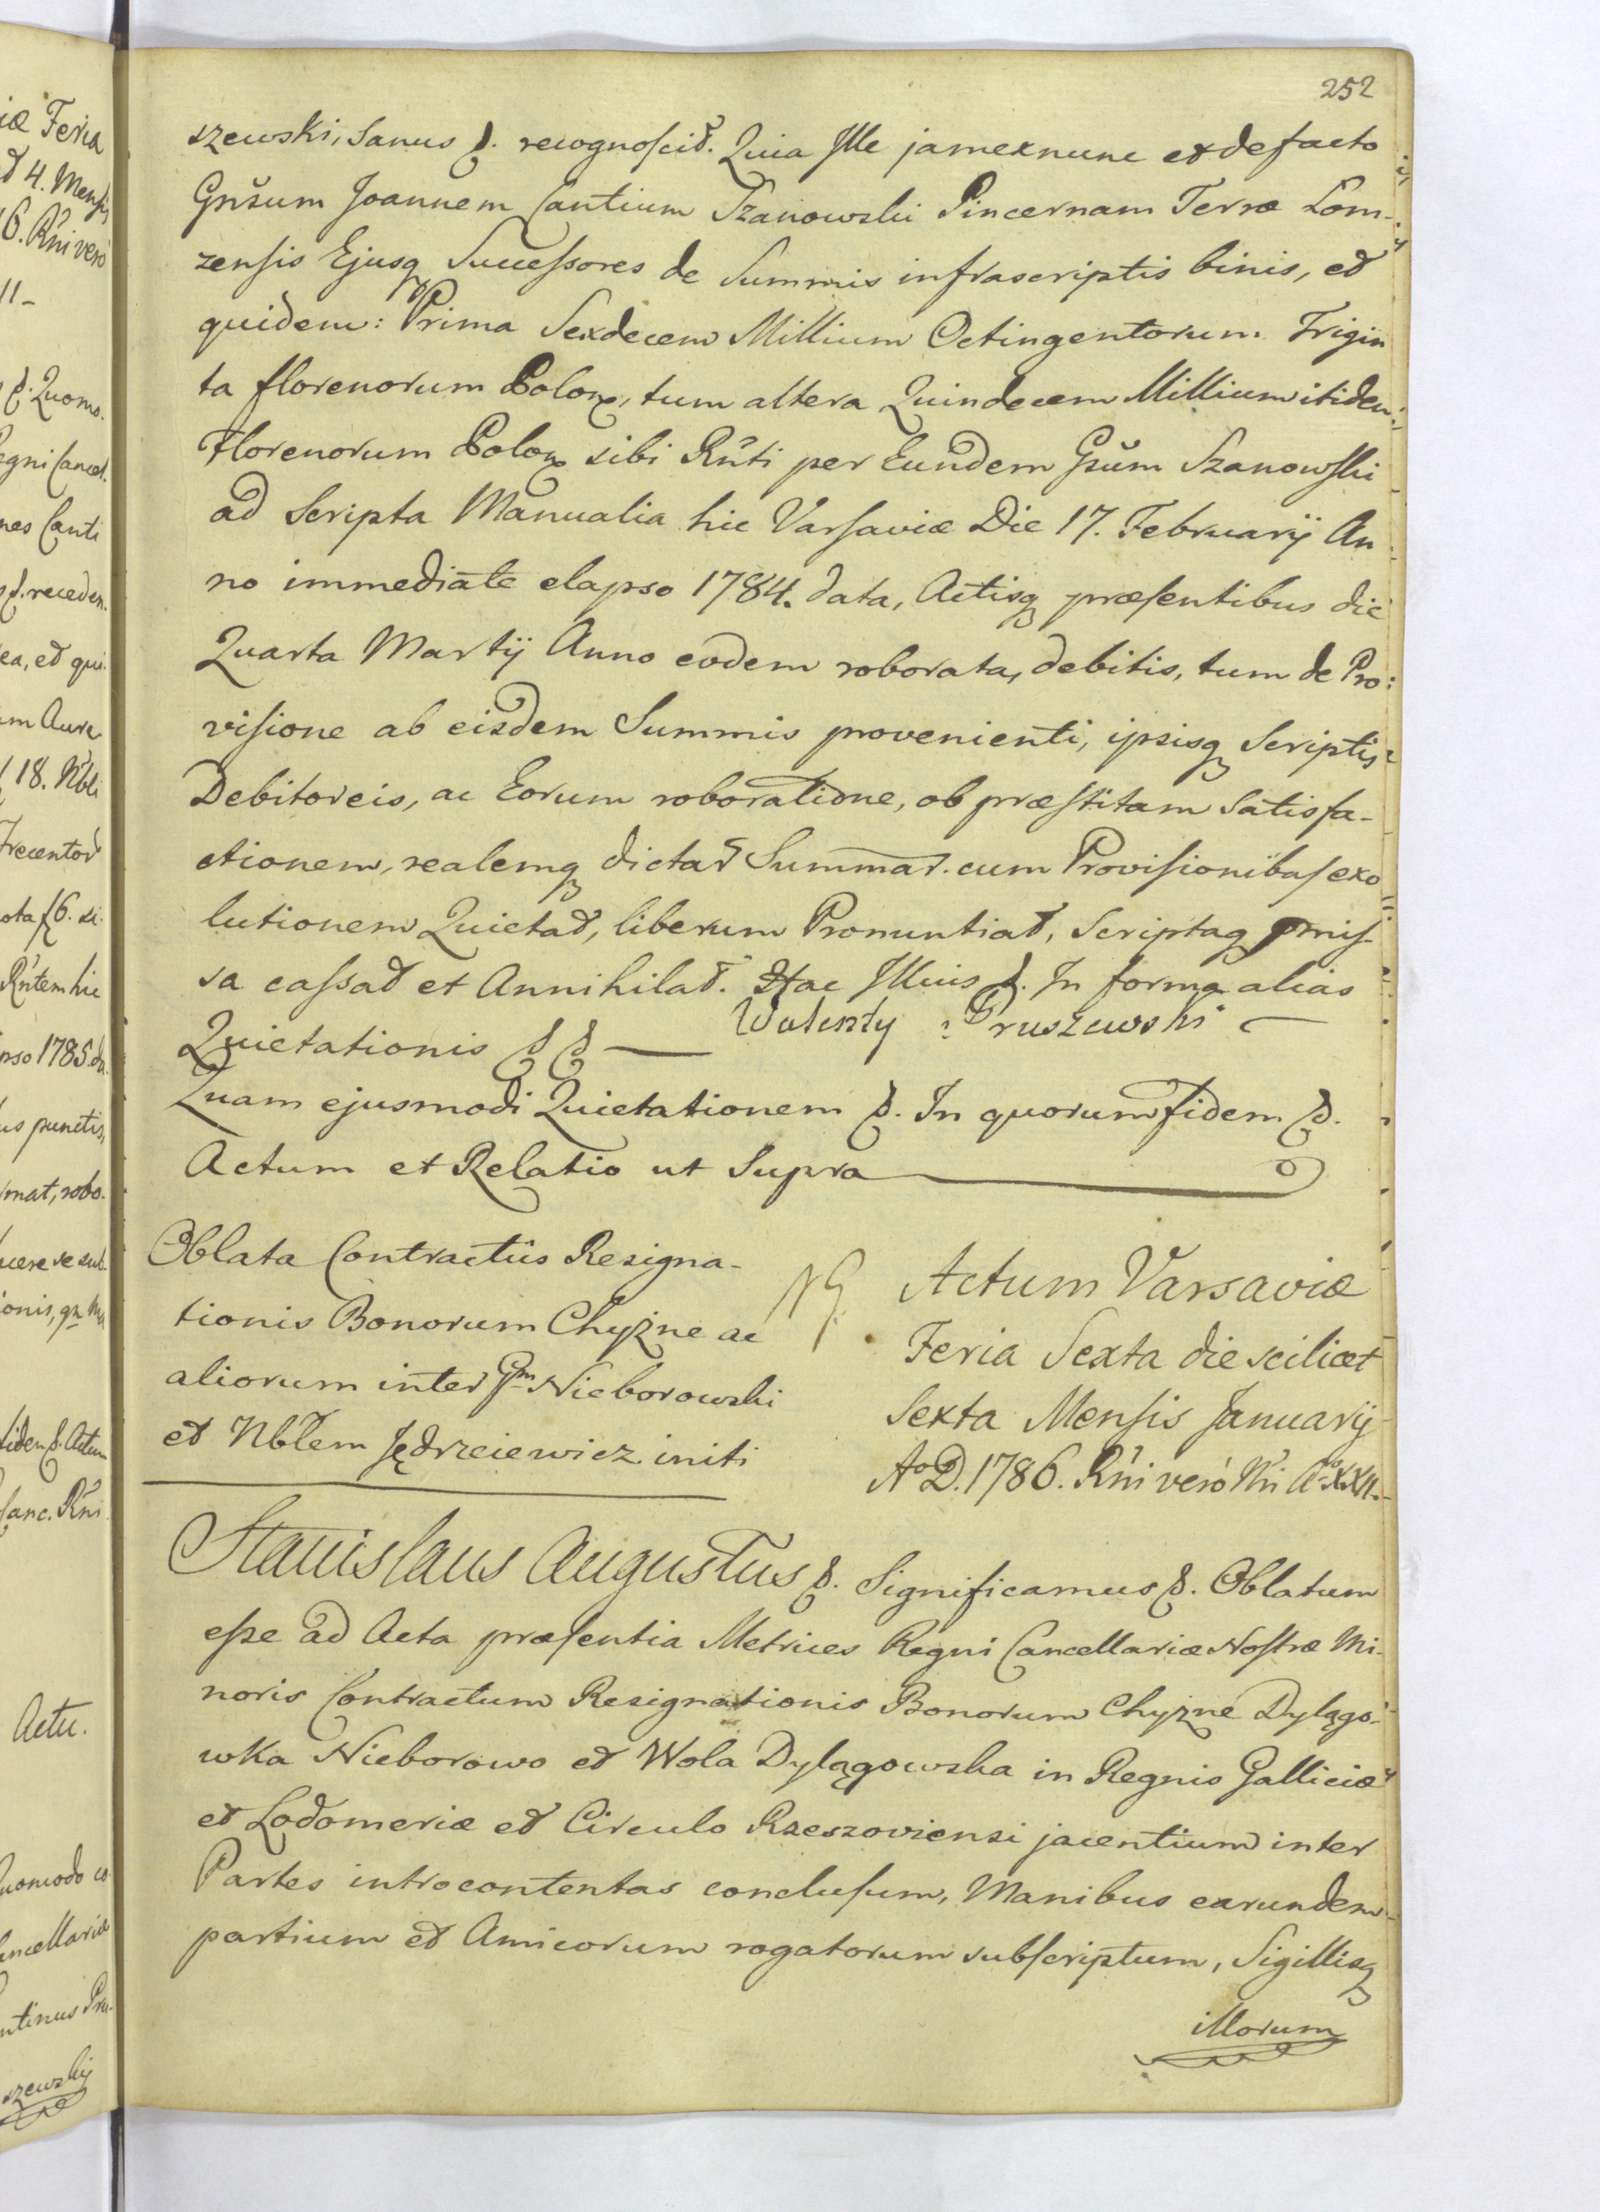 252
szewski, Sanus &. recognoscit. Quia Ille jamexnunc et de facto
Gnsum Joannem Cantium Szanowski Pincernam Terræ Lom-
zensis Ejusq Successores de Summis infrascriptis binis, et
quidem: Prima Sexdecem Millium Octingentorum Trigin
ta florenorum Polon, tum altera Quindecem Millium itidem
Florenorum Polon sibi Rnti per Eundem Gsum Szanowski
ad Scripta Manualia hic Varsaviæ Die 17. Februarij An
no immediate elapso 1784. data, Actisq præsentibus die
Quarta Martij Anno eodem roborata, debitis, tum de Pro:
visione ab eisdem Summis provenienti, ipsisq Scriptis
Debitoreis, ac Eorum roboratione, ob præstitam Satisfa-
ctionem, realemq dictar Summar. cum Provisionibus exo
lutionem Quietat, liberum Pronuntiat, Scriptaq pmis-
sa cassat et Annihilat. Hac Illius &. In forma alias
Quietationis & & — Walenty Pruszewski —
Quam ejusmodi Quietationem &. In quorum fidem &.
Actum et Relatio ut Supra
Oblata Contractûs Resigna-
tionis Bonorum Chyzne ac
aliorum inter Gm Nieborowski
et Nblem Jędrzeiewicz initi
NG.
Actum Varsaviæ
Feria Sexta die scilicet
Sexta Mensis Januarij
Ao D. 1786. Rni verò Nri Ao XXII.
Stanislaus Augustus &. Significamus &. Oblatum
esse ad Acta præsentia Metrices Regni Cancellariæ Nostræ Mi-
noris Contractum Resignationis Bonorum Chyzne Dylągo-
wka Nieborowo et Wola Dylągowska in Regnis Galliciæ
et Lodomeriæ et Circulo Rzeszoviensi jacentium inter
Partes introcontentas conclusum, Manibus earundem
partium et Amicorum rogatorum subscriptum, Sigillisq
illorum